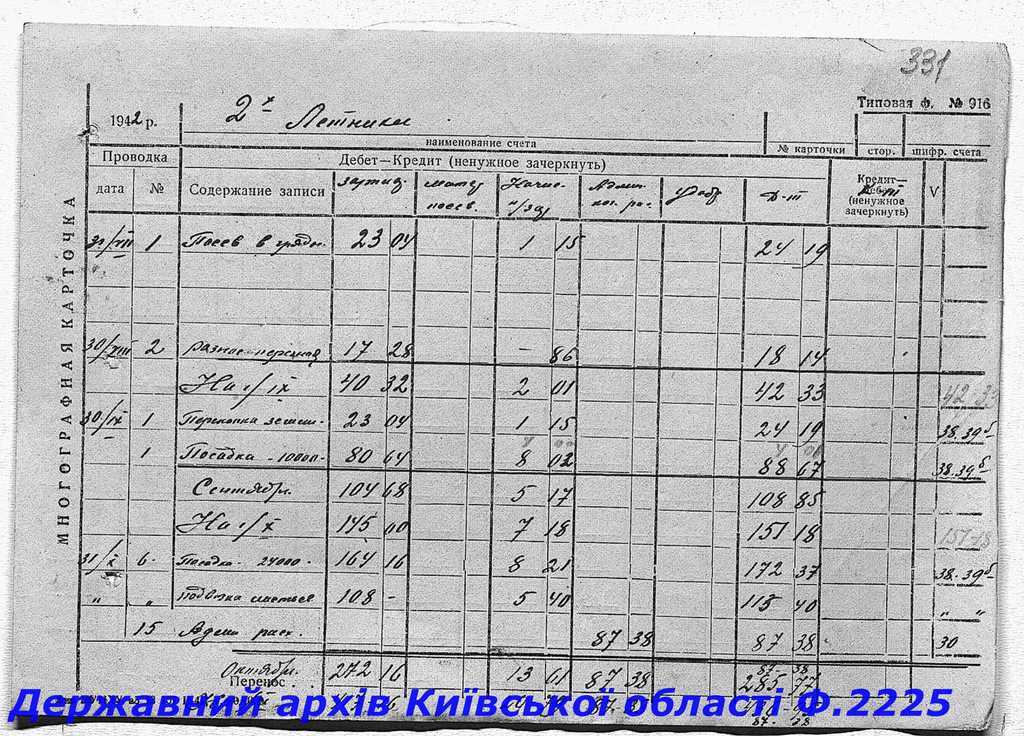 331
Типовая ф. № 916
1942 р. 2х Летники
наименование счета № карточки стор. шифр. счета
Проводка Дебет—Кредит (ненужное зачеркнуть)
дата № Содержание записи матер посев. Начис. н/зар Админ. Удобр Д-т Кредит— Дебет (ненужное зачеркнуть) V
МНОГОГРАФНАЯ КАРТОЧКА
31/VIII 1 Посев в 23 04 1 15 24 19
30/VIII 2 17 28 – 86 18 14
На 1/IX 40 32 2 01 42 33 42-33
30/IX 1 23 04 1 15 24 19 38.39б
1 Посадка -10000- 80 64 8 02 88 67 38.39б
Сентябрь 104 68 5 17 108 85
На 1/X 145 00 7 18 151 18 151-18
31/X 6. Посадка 24000 - 164 16 8 21 172 37 38.39б
" " листьев 108 - 5 40 113 40 " "
15 Адми расх. 87 38 87 38 30
87 - 38
Октябрь 272 16 13 61 87 38 285 77
Перенос
Державний архів Київської області Ф.2225